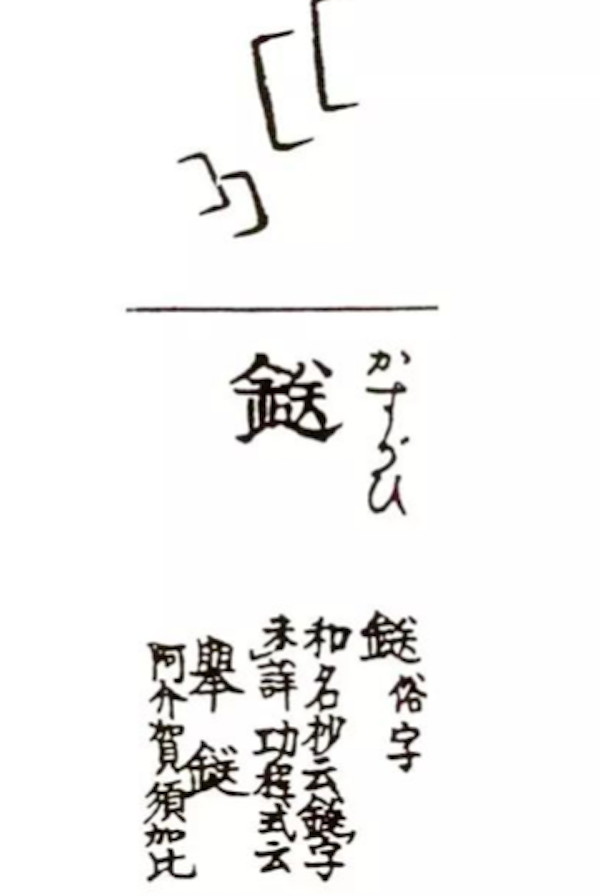 かすがひ
鎹
鎹俗字
和名抄云鎹字
未詳功程式云
舉鎹
阿介賀須加比